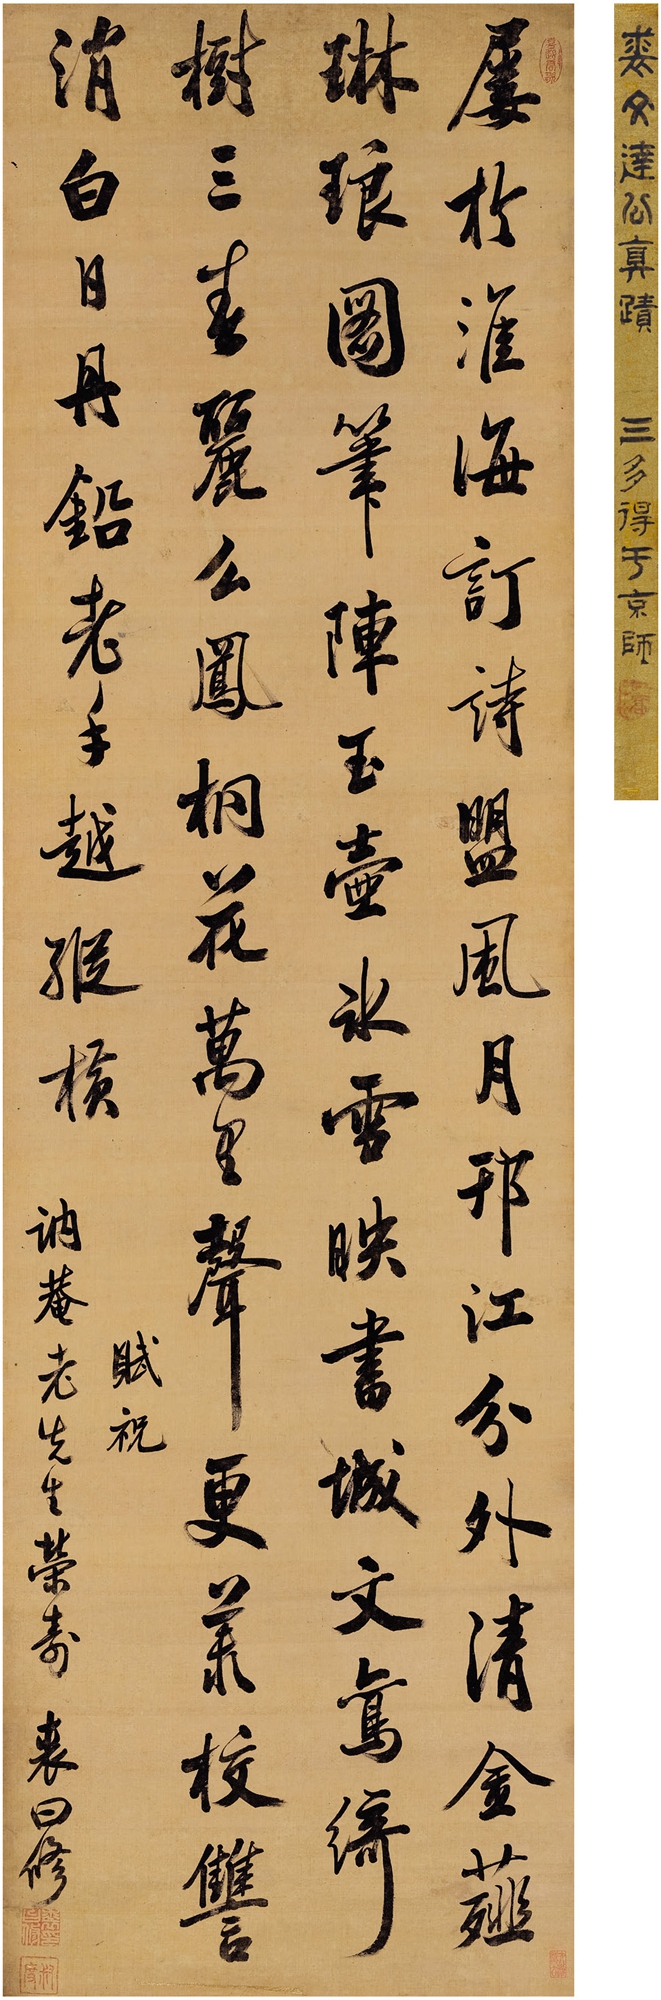 屡於淮海訂詩盟風月邗江分外清金薤
琳琅圖筆陣玉壺冰雪映書城文鴛綺
樹三春麗么鳳桐花萬里聲更羨校讐
消白日丹鉛老手越縱橫
賦祝
訥菴老先生榮壽 裘曰修
裘文達公真蹟 三多得于京師